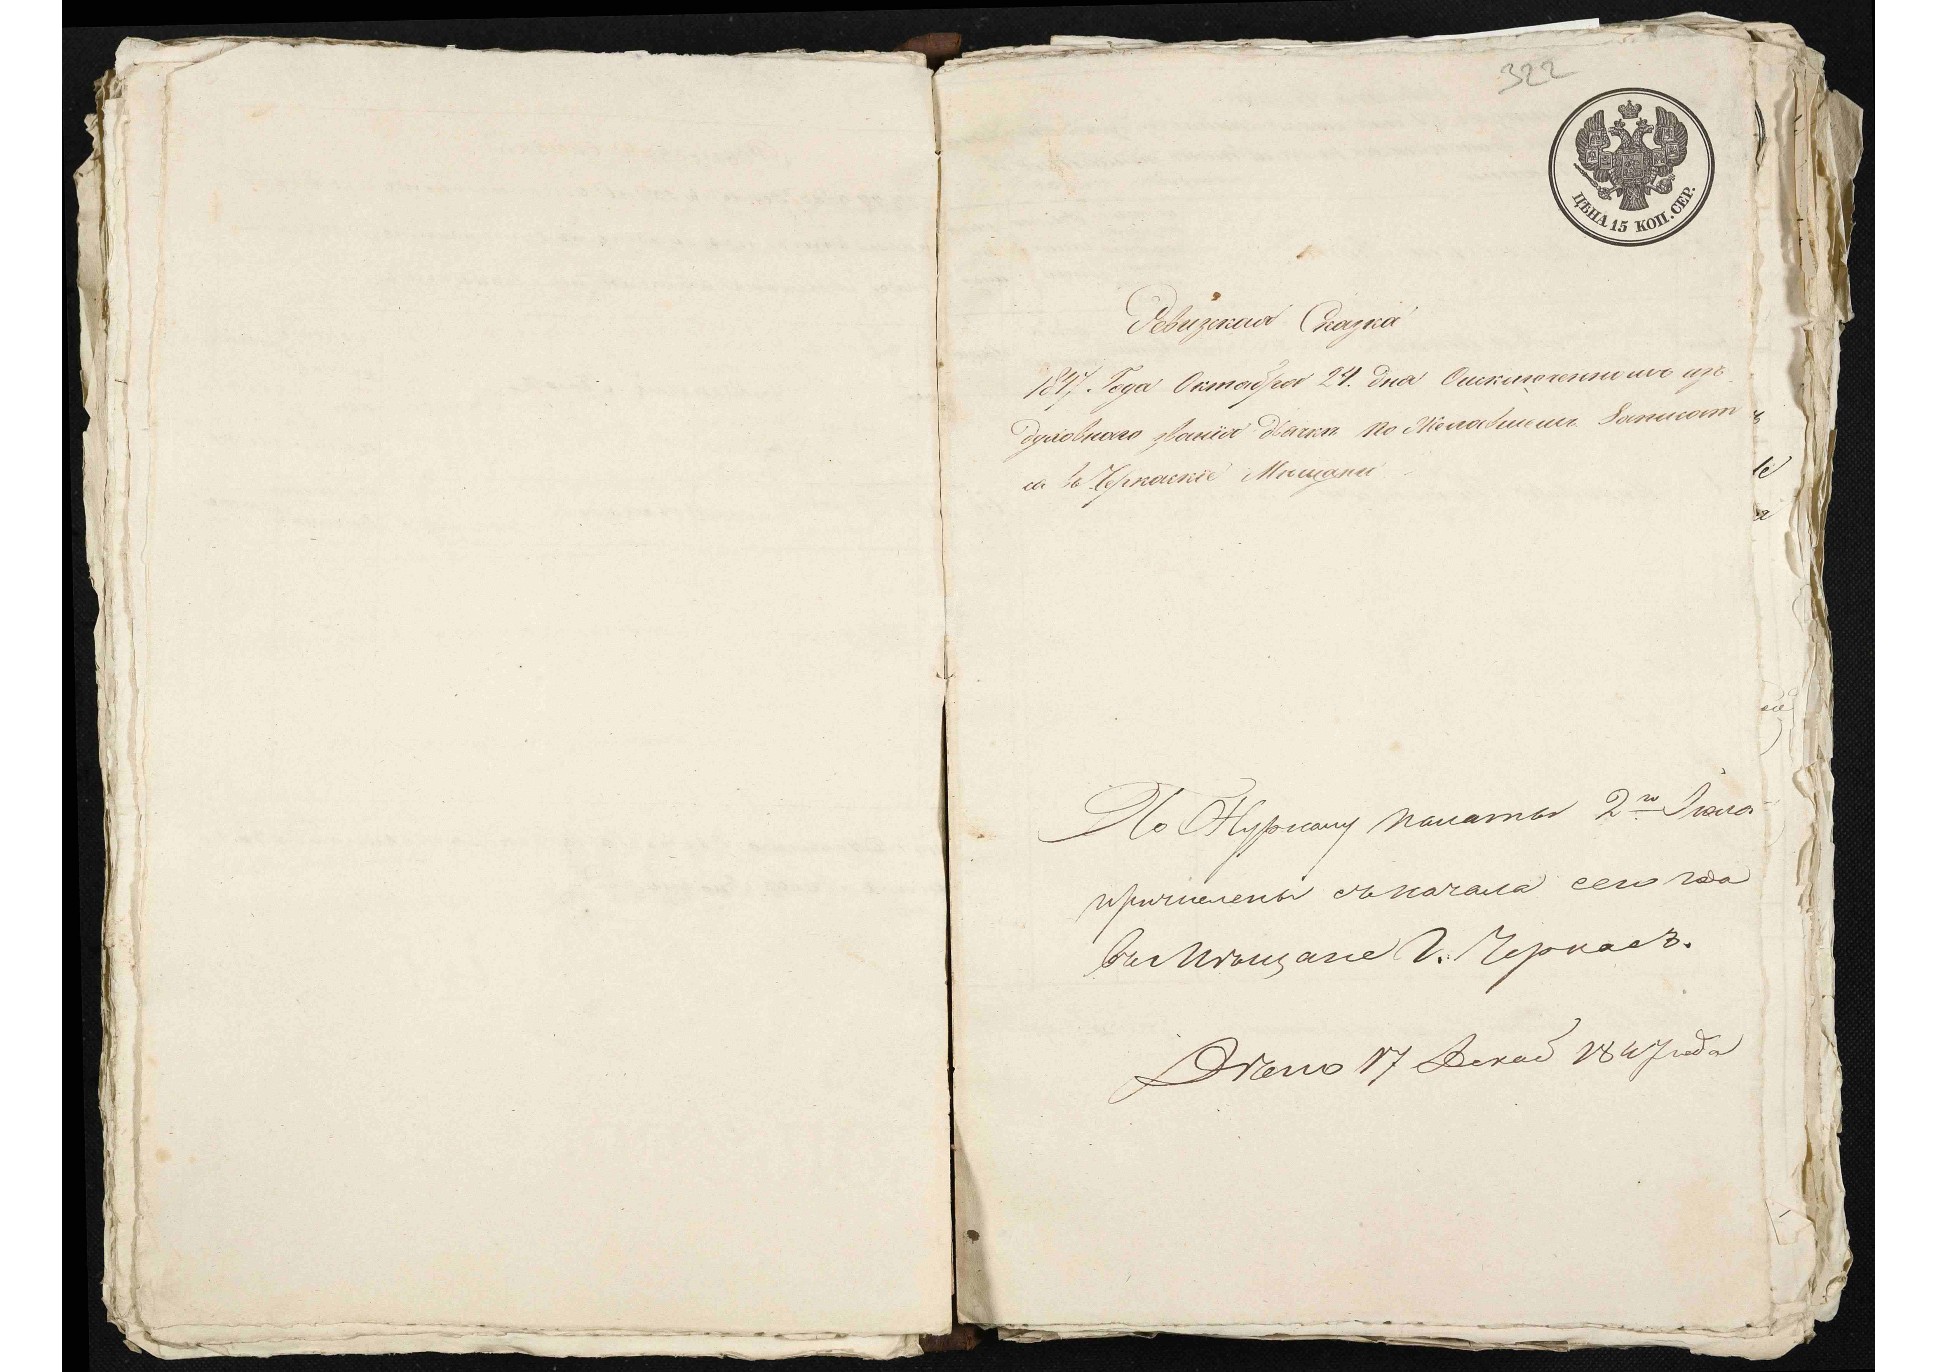 322
ЦѢНА 15 КОП. СЕР.
Ревизская Сказка
1847. Года Октября 24. дня Оисключенномъ изъ
духовнаго званія по Желавшемъ Записат
ся въ Черкаскіе Мищани
По Журналу палаты 2го
причислены съ начала сего года
въ Мѣщане г. Черкасъ.
17 Декаб 1847 года